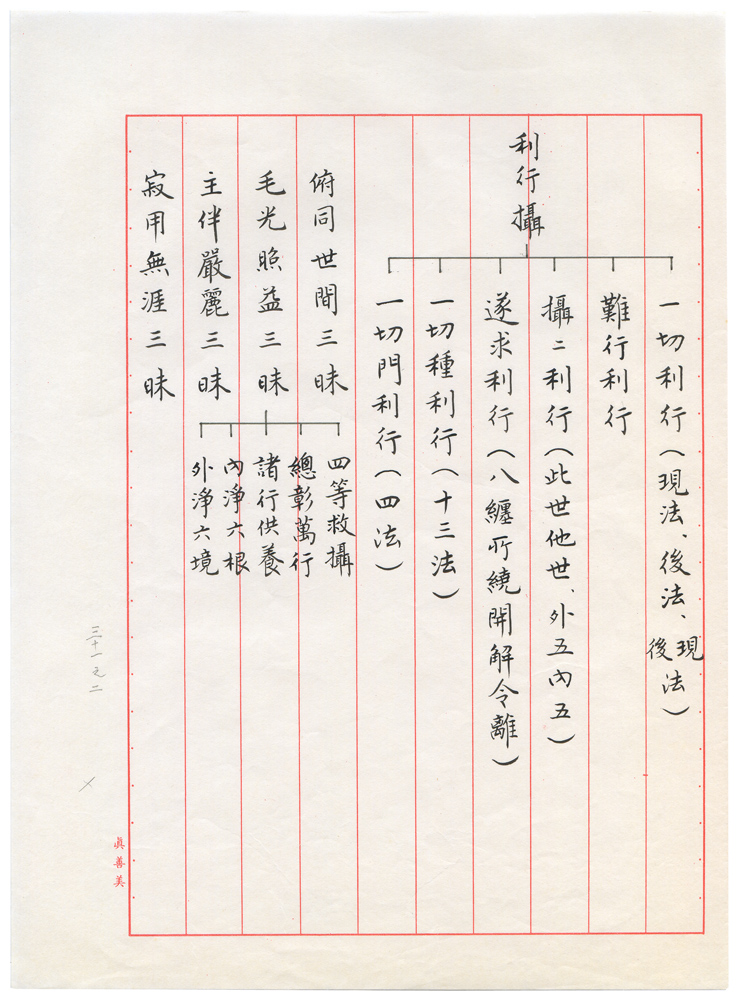 利行攝
一切利行（現法、後法、現後法）
難行利行
攝二利行（此世他世、外五內五）
遂求利行（八纏所繞開解令離）
一切種利行（十三法）
一切門利行（四法）
俯同世間三昧
毛光照益三昧
四等救攝
總彰萬行
諸行供養
內淨六根
外淨六境
主伴嚴麗三昧
寂用無涯三昧
三十一之二
真善美